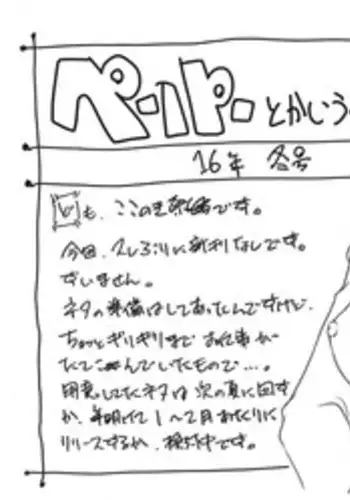 ペーパー とかいう
16年 冬号
ども、ここのえ です。
今回、久しぶりに新刊なしです。
すいません。
ネタの準備はしてあったんですけど、
ちょっとギリギリまで お仕事が
たてこんでいたもので…。
用意してたネタは 次の夏に回す
か、年明けて 1〜2月あたりに
リリースするか、検討中です。